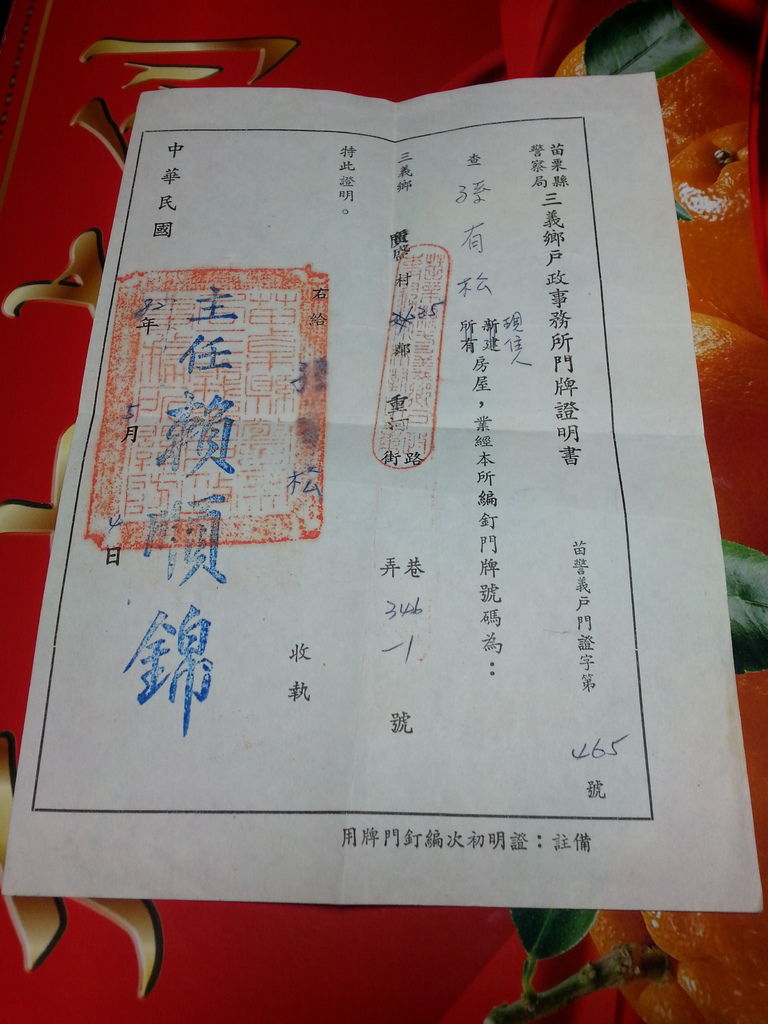 苗栗縣警察局三義鄉戶政事務所門牌證明書
苗警義戶門證字第 465 號
查 孫有松 現住人
新建所有房屋，業經本所編釘門牌號碼為：
三義鄉 廣盛村 35 鄰 重河 街路 巷弄 346-1 號
特此證明。
右給 孫有松 收執
主任 賴順錦
中華民國 82 年 5 月 4 日
備註：證明初次編釘門牌用